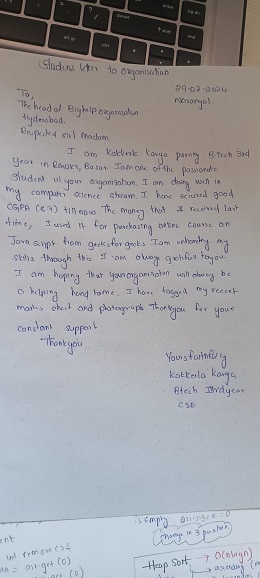 Student letter to organisation
29-02-2024
To,
Nirmal
The head of Bighelp organisation
Hyderabad.
Respected sir/ madam
I am Kokkerla Kavya pursing B.Tech 3rd
Year in RGUKT, Basar. I am one of the passionate
Student of your organisation. I am doing well in
my computer science stream. I have scored good
CGPA (8.7) till now. The money that I received last
time, I used it for purchasing online course on
Java script from geeksforgeeks I am enhancing my
skills through this. I am always grateful to you.
I am hoping that your organisation will always be
a helping hand to me. I have tagged my recent
marks sheet and photograph Thankyou for your
constant support
Thankyou
Yours faithfully
Kokkerla Kavya
Btech IIIrd year
CSE
is Empty
change in 3 postion
int remove() {
= arr.get(0)
arr.get(0)
Heap Sort → O(nlogn)
→ ascending